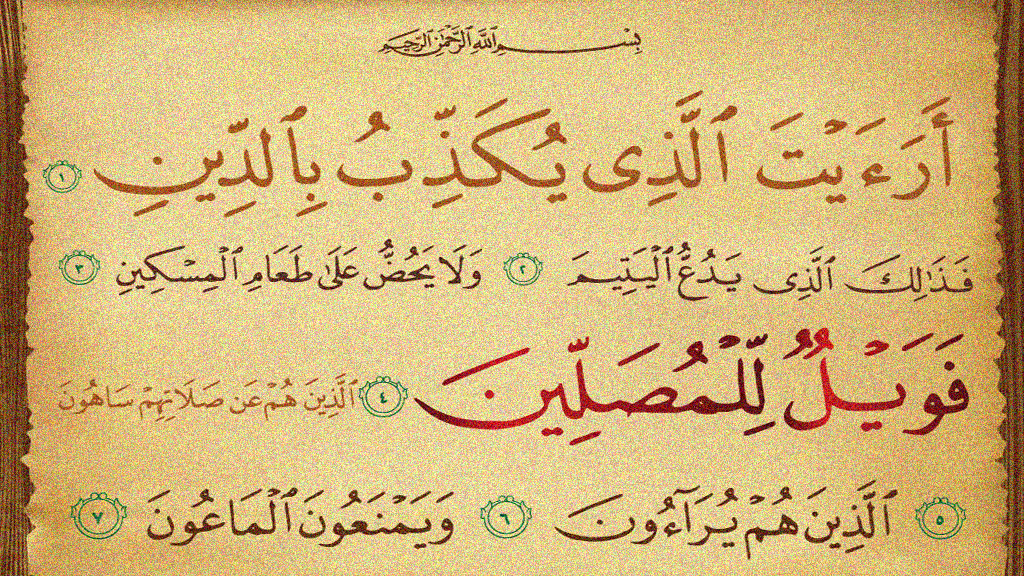 بِسْمِ ٱللَّهِ ٱلرَّحْمَٰنِ ٱلرَّحِيمِ
أَرَءَيْتَ ٱلَّذِى يُكَذِّبُ بِٱلدِّينِ ١
فَذَٰلِكَ ٱلَّذِى يَدُعُّ ٱلْيَتِيمَ ٢ وَلَا يَحُضُّ عَلَىٰ طَعَامِ ٱلْمِسْكِينِ ٣
فَوَيْلٌ لِّلْمُصَلِّينَ ٤ ٱلَّذِينَ هُمْ عَن صَلَاتِهِمْ سَاهُونَ
٥ ٱلَّذِينَ هُمْ يُرَآءُونَ ٦ وَيَمْنَعُونَ ٱلْمَاعُونَ ٧